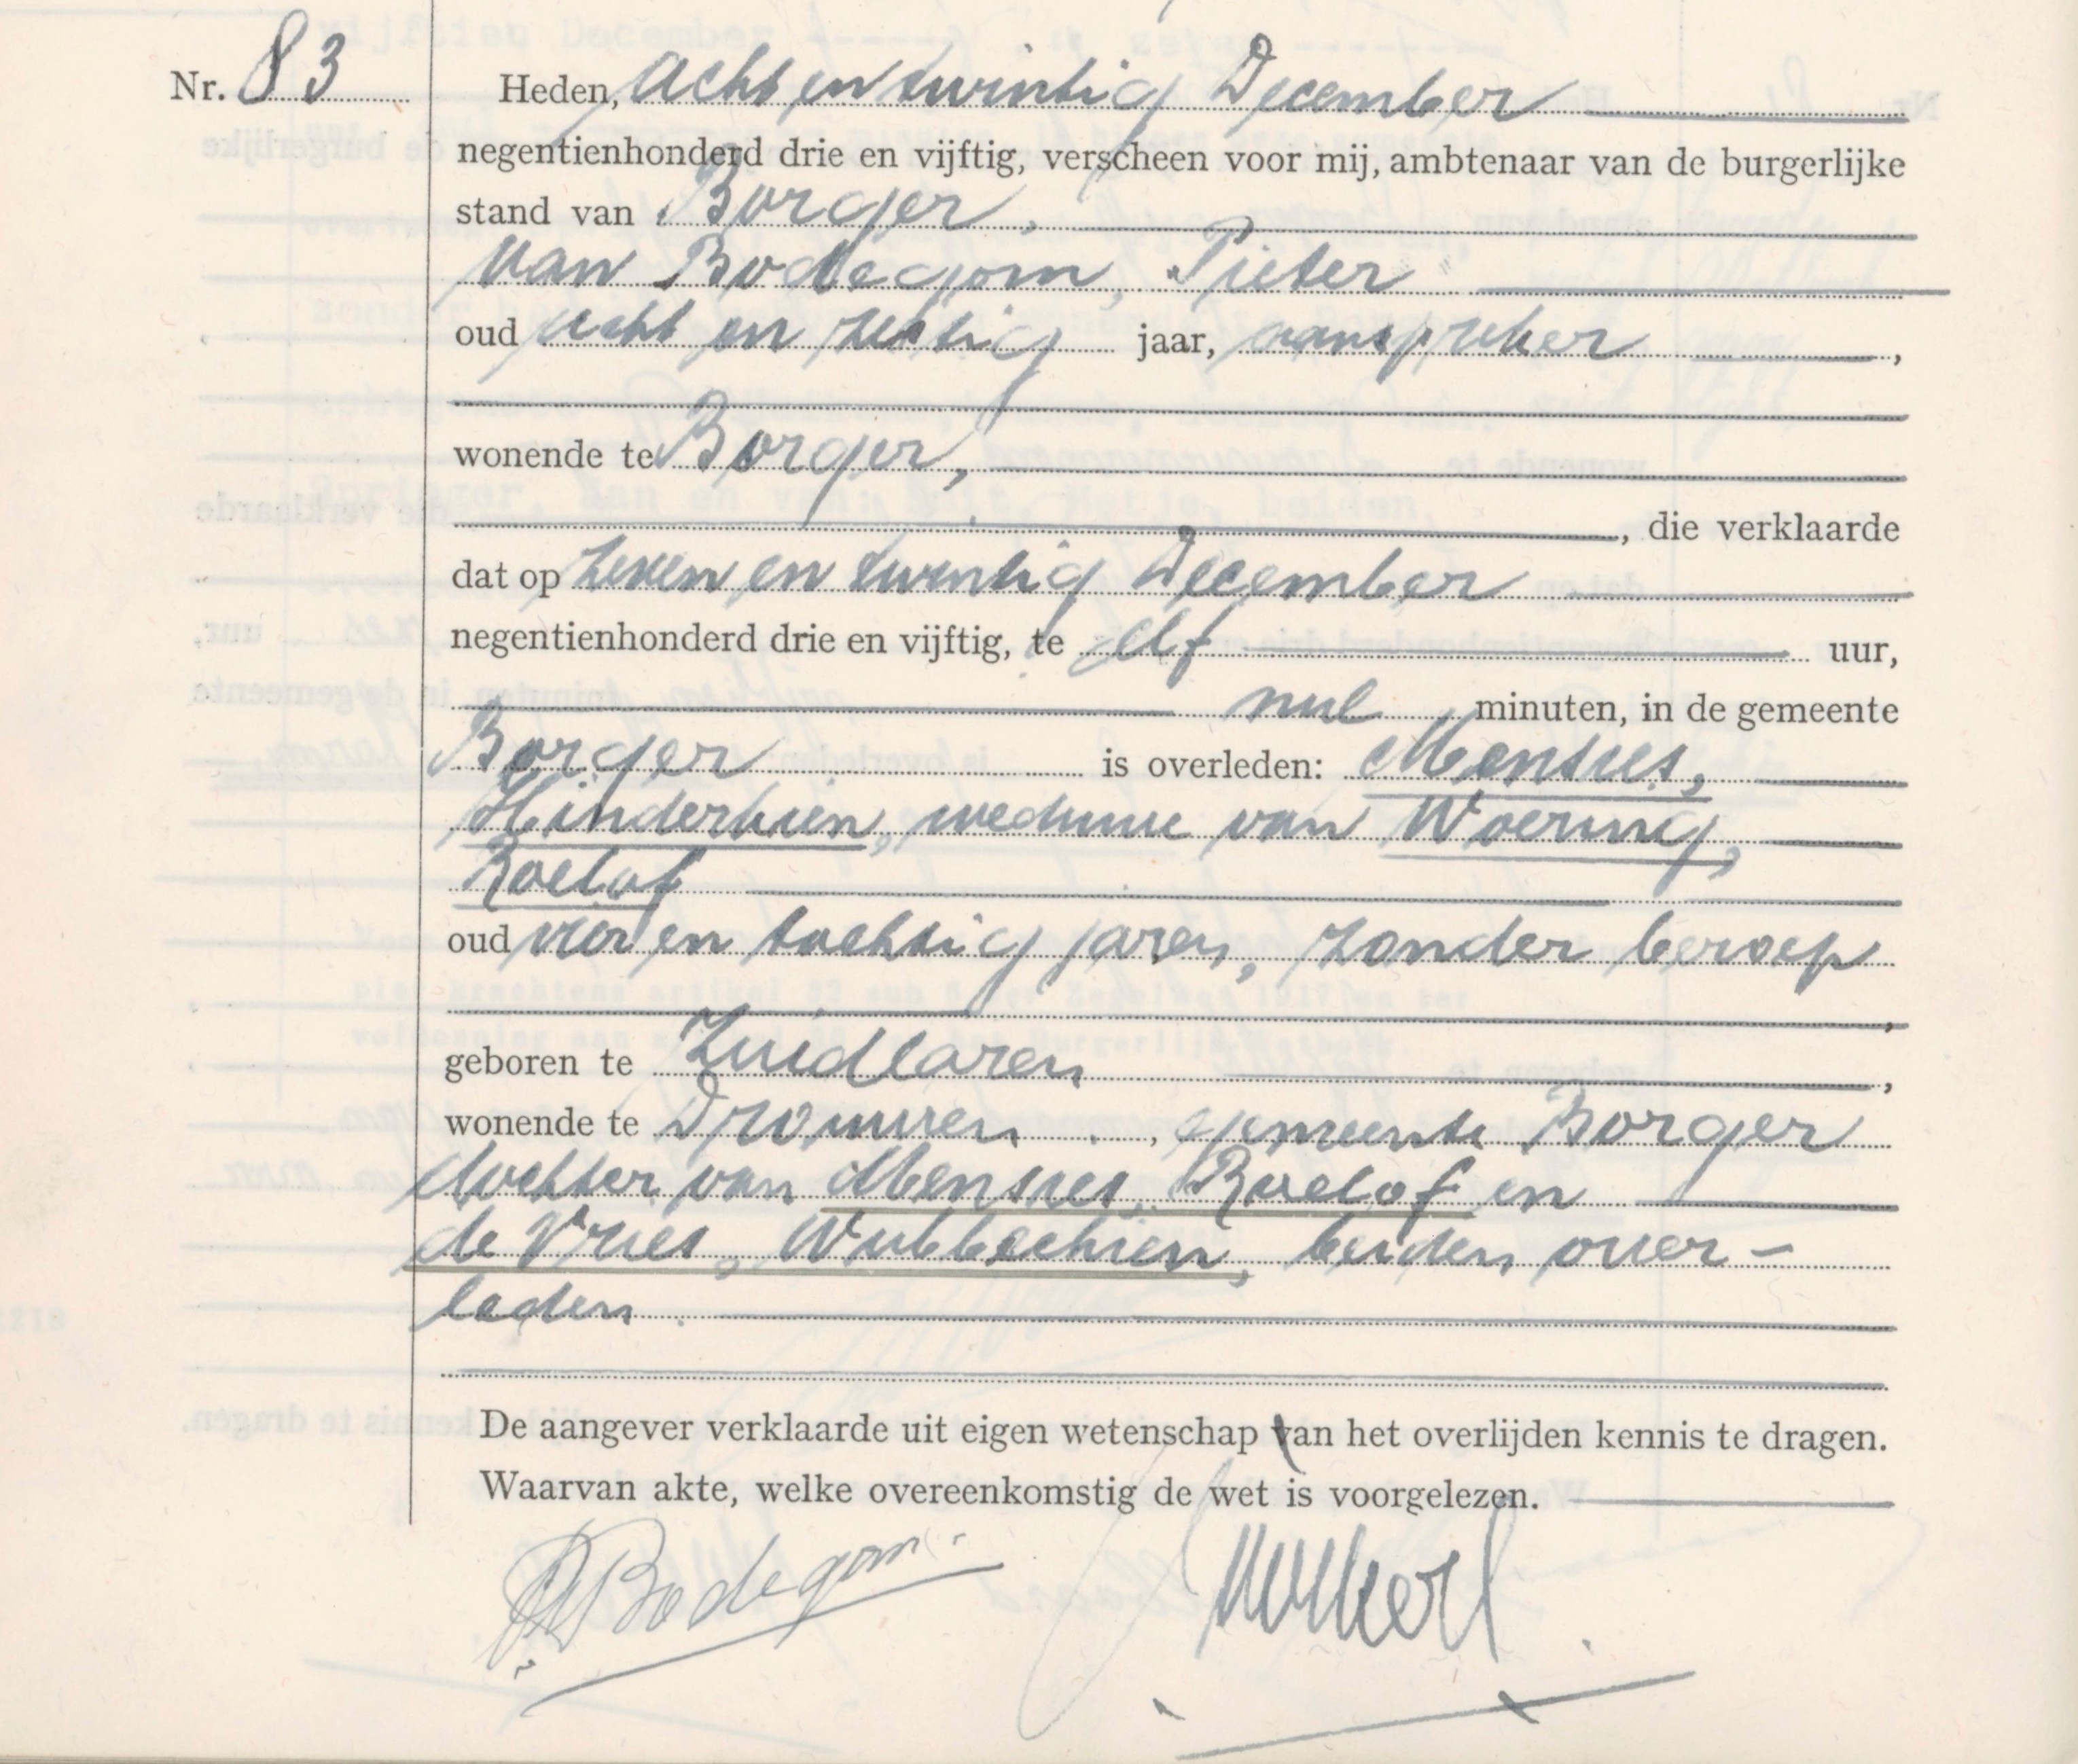 Nr. 83
Heden, acht en twintig December
negentienhonderd drie en vijftig, verscheen voor mij, ambtenaar van de burgerlijke
stand van Borger,
van Bodegom, Pieter
oud acht en zestig jaar, aanspreker,
wonende te Borger,
, die verklaarde
dat op zeven en twintig December
negentienhonderd drie en vijftig, te elf uur,
nul minuten, in de gemeente
Borger is overleden: Mensies,
Hinderkien, weduwe van Woering,
Roelof
oud vier en tachtig jaren, zonder beroep
,
geboren te Zuidlaren,
wonende te Drouwen, gemeente Borger
dochter van Mensies, Roelof en
de Vries, Wubbechien, beiden over-
leden.
De aangever verklaarde uit eigen wetenschap van het overlijden kennis te dragen.
Waarvan akte, welke overeenkomstig de wet is voorgelezen.
Bodegom